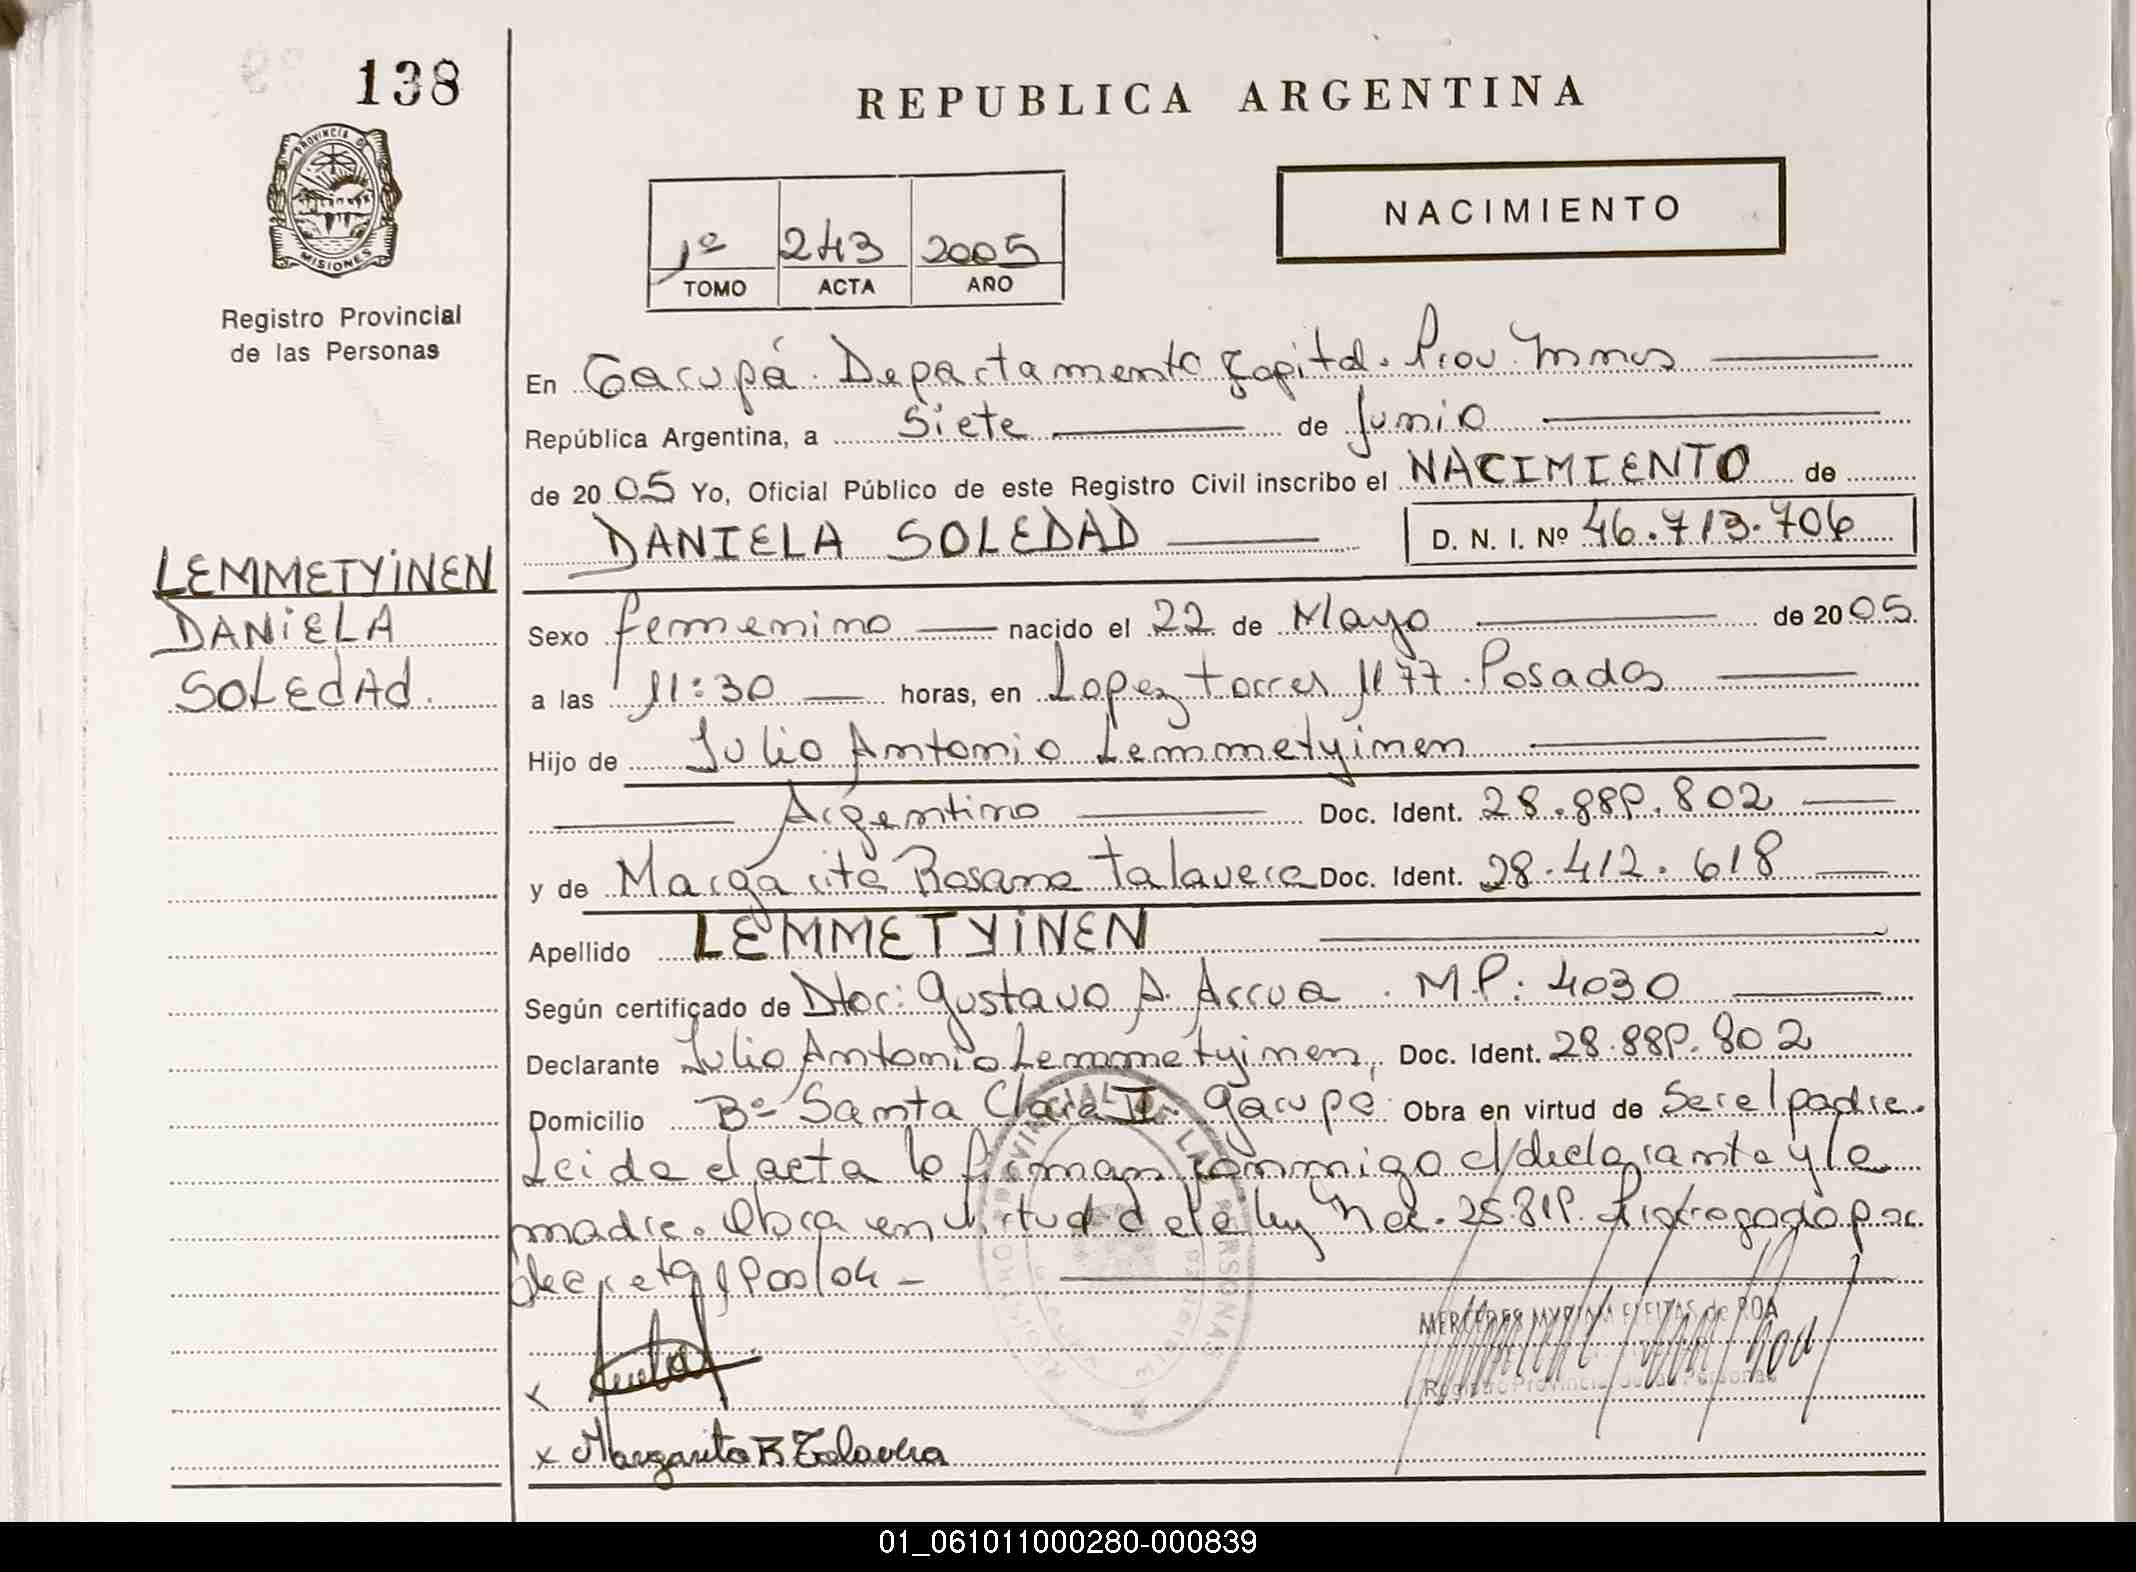 138
REPUBLICA ARGENTINA
PROVINCIA DE
MISIONES
Registro Provincial
de las Personas
1º 243 2005
TOMO ACTA AÑO
NACIMIENTO
En Garupá. Departamento Capital. Prov. Mnes
República Argentina, a Siete de Junio
de 2005 Yo, Oficial Público de este Registro Civil inscribo el NACIMIENTO de
DANIELA SOLEDAD
D. N. I. Nº 46.713.706
LEMMETYiNEN
DANiELA
SOLEdAd.
Sexo femenino nacido el 22 de Mayo de 2005.
a las 11:30 horas, en Lopez torres 1177. Posadas
Hijo de Julio Antonio Lemmetyinen
Argentino Doc. Ident. 28.889.802
y de Margarita Rosana talavera Doc. Ident. 28.412.618
Apellido LEMMETYiNEN
Según certificado de Dtor: Gustavo A. Arrua. M.P: 4030
Declarante Julio Antonio Lemmetyinen, Doc. Ident. 28.889.802
Domicilio Bº Santa Clara II. Garupá Obra en virtud de Ser el padre.
Leida el acta la firman conmigo el declarante y la
madre. Obra en virtud de la ley 25.819. Prorrogado por
decreto
REGISTRO PROVINCIAL DE LAS PERSONAS
MERCEDES MYRIAM FLEITAS de ROA
Registro Provincial de las Personas
x
x Margarita R Talavera
01_061011000280-000839